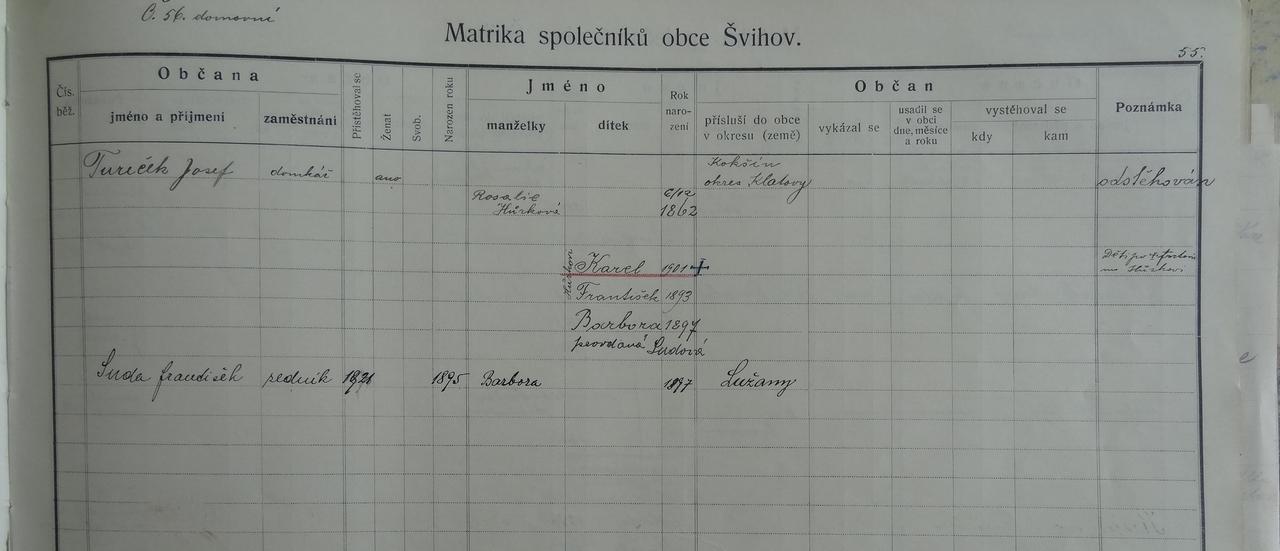 Č. 56. domovní
Matrika společníků obce Švihov.
55.
Čís. běž.
Občana
jméno a příjmení
zaměstnání
Přistěhoval se
Ženat
Svob.
Narozen roku
Jméno
manželky
dítek
Rok naro- zení
Občan
přísluší do obce v okresu (země)
vykázal se
usadil se v obci dne, měsíce a roku
vystěhoval se
kdy
kam
Poznámka
Tureček Josef domkář ano Kokšín
okres Klatovy odstěhován
Rosalie 6/12
Hůrková 1862
Hůrkovi Karel 1901 + Děti po
Hůrkovi
František 1893
Barbora 1897
provdaná Sudová
Suda František zedník 1921 1895 Barbora 1897 Lužany